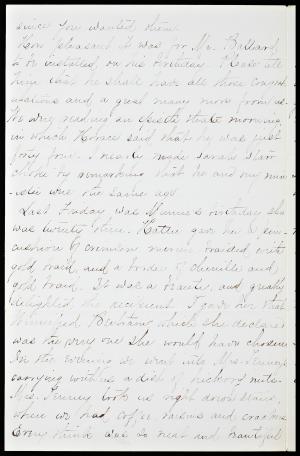 since you wanted them.
How pleasant it was for Mr. Ballard
to be installed on his birthday. Please tell
him that he shall have all those congrat-
ulations and a great many more from us.
We were reading an epistle that morning
in which Horace said that he was just
forty four. I nearly made Sarah Starr
choke by remarking that he and my
were the same age.
Last Friday was Minnie's birthday she
was twenty three. Hattie gave her a pin-
cushion of crimson merino braided with
gold braid and a border of chenille and
gold braid. It was a beauty, and greatly
delighted the recipient. I gave her that
Winnifred Bertrane which she declares
was the very one she would have chosen.
In the evening we went into Mrs. Tenney's
carrying with us a dish of hickory nuts.
Mrs. Tenney took us right down stairs,
where we had coffee raisins and crackers
Every thing was so neat and beautiful